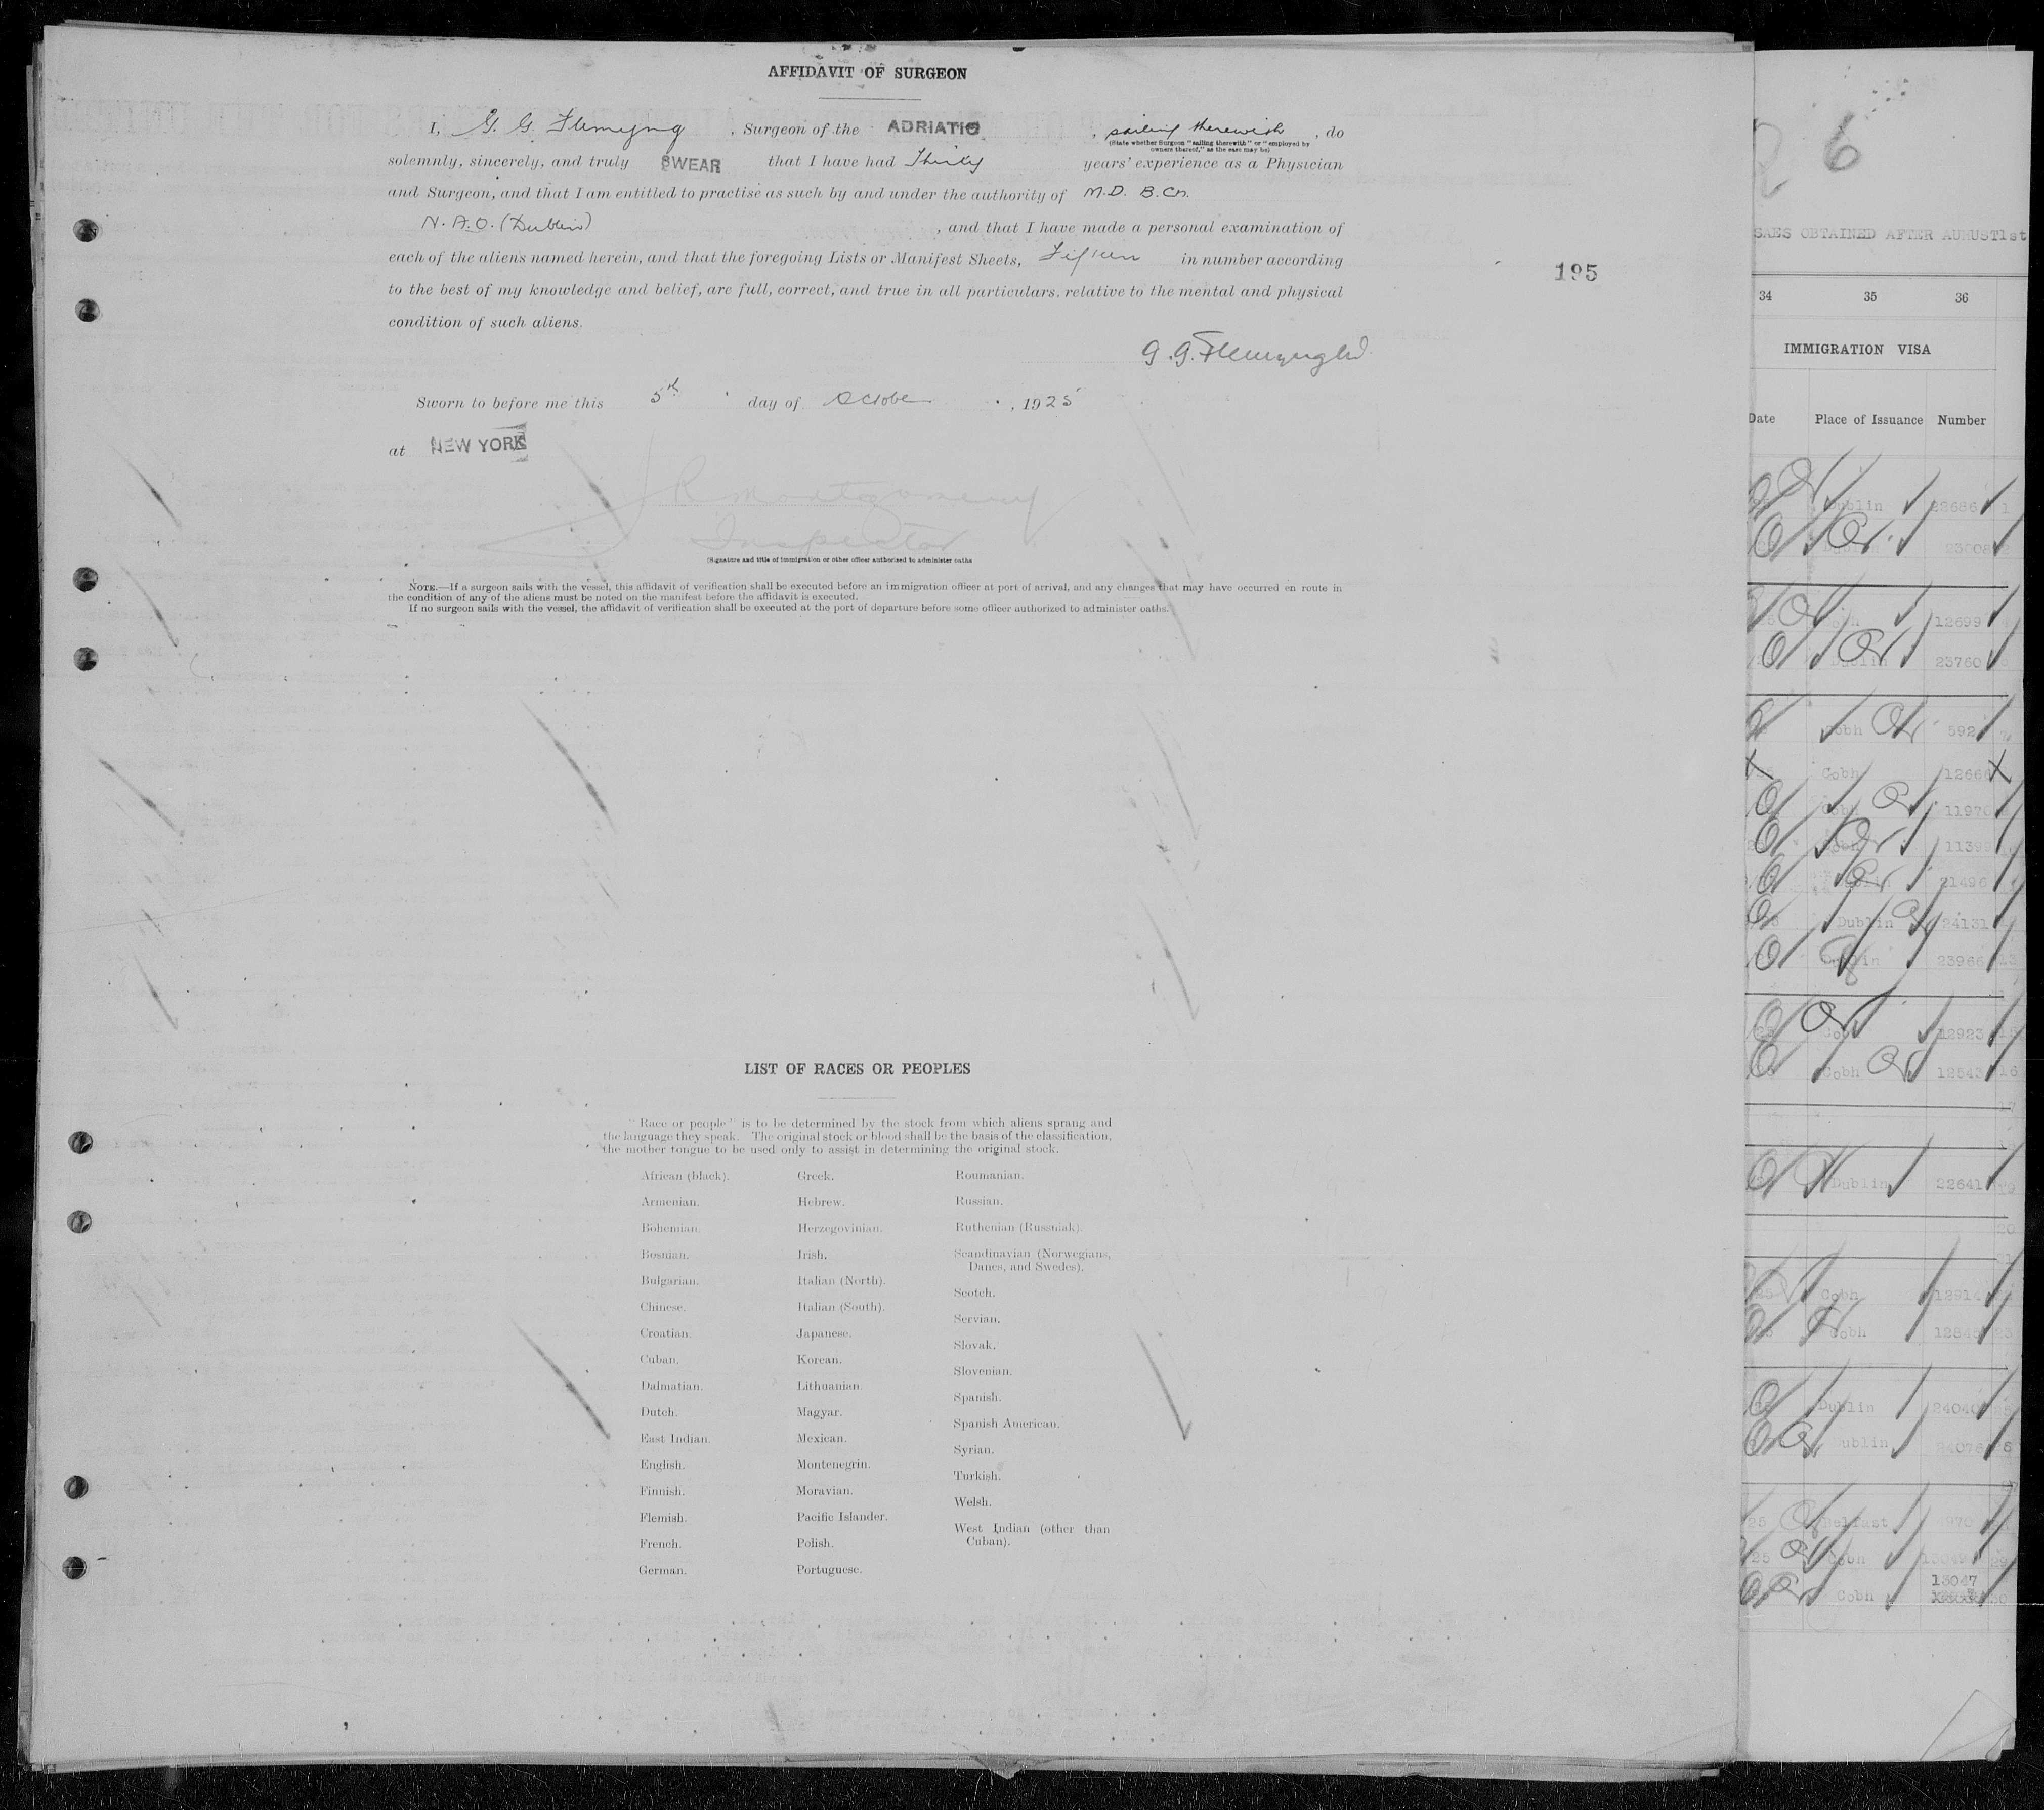 AFFIDAVIT OF SURGEON
I, G. G. Flemyng, Surgeon of the ADRIATIC, sailing therewith, do
(State whether Surgeon "sailing therewith" or "employed by
owners thereof," as the case may be)
solemnly, sincerely, and truly SWEAR that I have had Thirty years' experience as a Physician
and Surgeon, and that I am entitled to practise as such by and under the authority of M.D. B.Ch.
(Dublin), and that I have made a personal examination of
each of the aliens named herein, and that the foregoing Lists or Manifest Sheets, Fifteen in number according
to the best of my knowledge and belief, are full, correct, and true in all particulars. relative to the mental and physical
condition of such aliens.
G. G. Flemyng
Sworn to before me this 5th day of October, 1925
at NEW YORK
J R Montgomery
Inspector
(Signature and title of immigration or other officer authorized to administer oaths
NOTE.—If a surgeon sails with the vessel, this affidavit of verification shall be executed before an immigration officer at port of arrival, and any changes that may have occurred en route in
the condition of any of the aliens must be noted on the manifest before the affidavit is executed.
If no surgeon sails with the vessel, the affidavit of verification shall be executed at the port of departure before some officer authorized to administer oaths.
195
LIST OF RACES OR PEOPLES
"Race or people" is to be determined by the stock from which aliens sprang and
the language they speak. The original stock or blood shall be the basis of the classification,
the mother tongue to be used only to assist in determining the original stock.
African (black).
Armenian.
Bohemian.
Bosnian.
Bulgarian.
Chinese.
Croatian.
Cuban.
Dalmatian.
Dutch.
East Indian.
English.
Finnish.
Flemish.
French.
German.
Greek.
Hebrew.
Herzegovinian.
Irish.
Italian (North).
Italian (South).
Japanese.
Korean.
Lithuanian.
Magyar.
Mexican.
Montenegrin.
Moravian.
Pacific Islander.
Polish.
Portuguese.
Roumanian.
Russian.
Ruthenian (Russniak).
Scandinavian (Norwegians,
Danes, and Swedes).
Scotch.
Servian.
Slovak.
Slovenian.
Spanish.
Spanish American.
Syrian.
Turkish.
Welsh.
West Indian (other than
Cuban).
6
SAES OBTAINED AFTER AUHUST1st
34 35 36
IMMIGRATION VISA
Date Place of Issuance Number
Dublin 22686 1
2300
12699
Dublin 23760
Cobh 592
Cobh 12666
Cobh 11970
1139
21496
Dublin 24131
23966 13
12923
Cobh 12543 16
17
Dublin 22641 19
20
Cobh 12914
Cobh
Dublin 24040
Dublin 24076
25 Belfast 970
25 Cobh
13047
Cobh